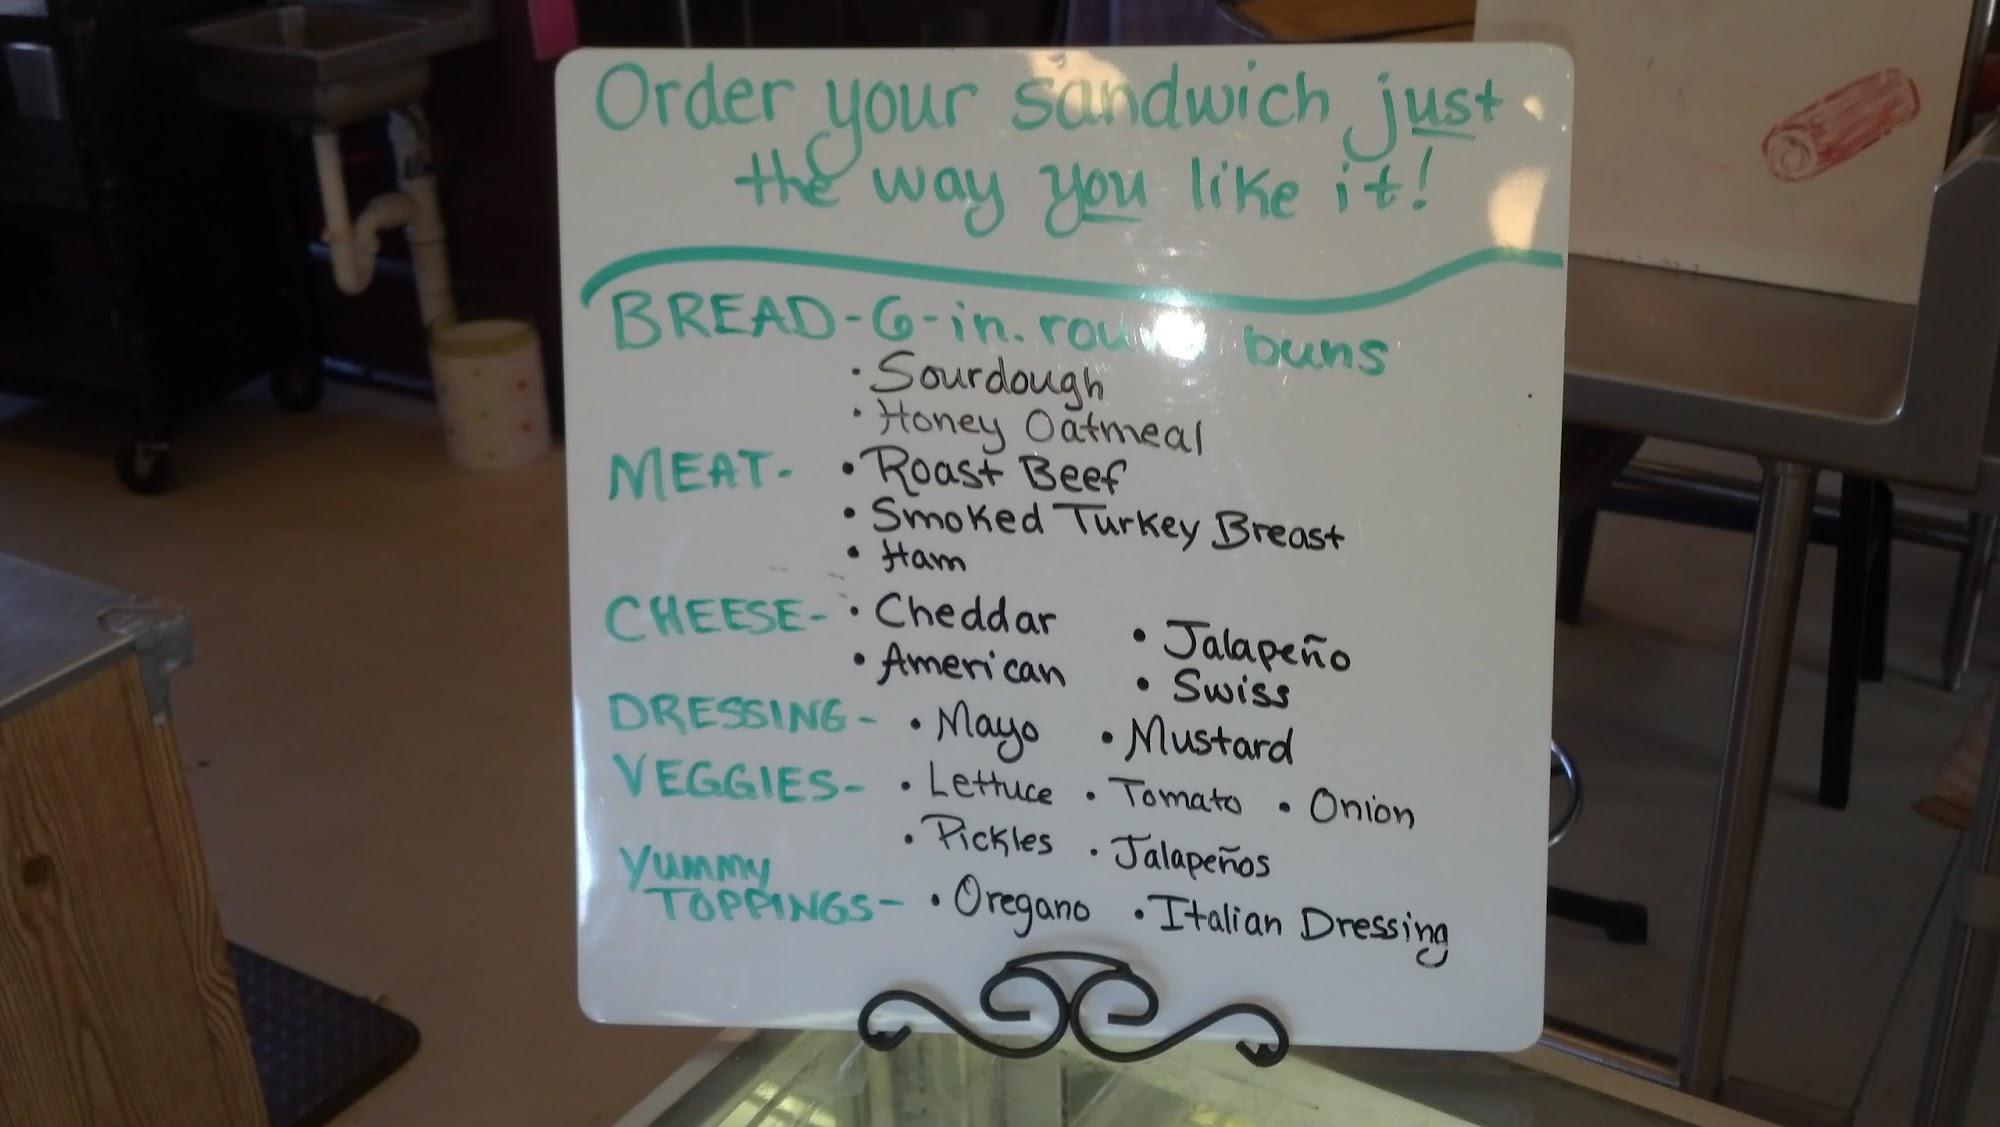 Order your sandwich just
the way you like it!
BREAD - 6-in. round buns
• Sourdough
• Honey Oatmeal
MEAT - • Roast Beef
• Smoked Turkey Breast
• Ham
CHEESE - • Cheddar • Jalapeño
• American • Swiss
DRESSING - • Mayo • Mustard
VEGGIES - • Lettuce • Tomato • Onion
• Pickles • Jalapeños
YUMMY
TOPPINGS - • Oregano • Italian Dressing